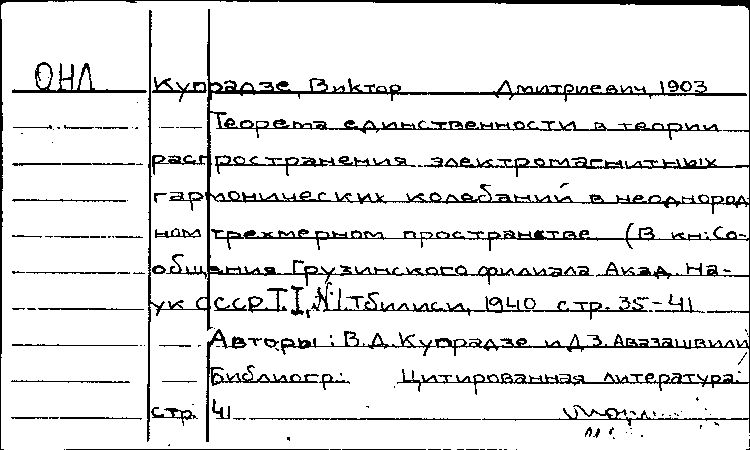 ОНЛ Купрадзе, Виктор Дмитриевич, 1903
Теорема единственности в теории
распространения электромагнитных
гармонических колебаний в неоднород
ном трехмерном пространстве (В кн: Со-
общения Грузинского филиала Акад. На-
ук СССР. Т. I, №1. Тбилиси, 1940 стр. 35-41
Авторы: В.Д. Купрадзе и Д.З. Авазашвили
Библиогр: Цитированная литература:
стр 41